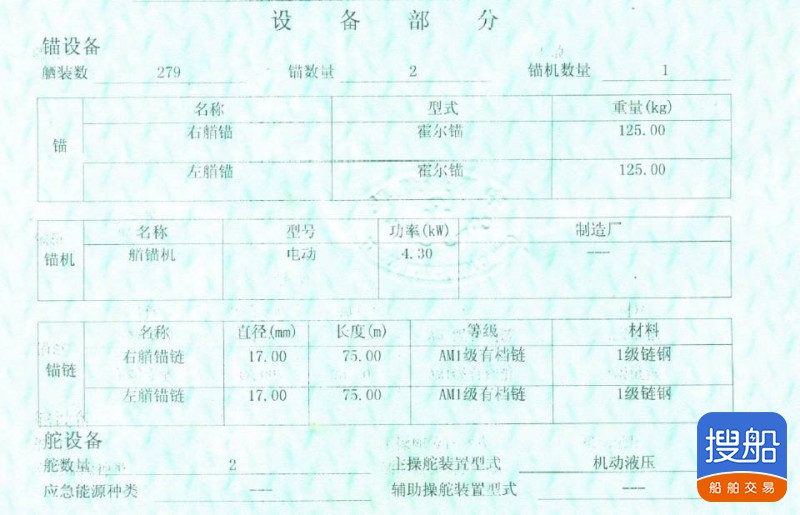 设 备 部 分
锚设备
舾装数 279 锚数量 2 锚机数量 1
锚
名称 型式 重量(kg)
右艏锚 霍尔锚 125.00
左艏锚 霍尔锚 125.00
锚机
名称 型号 功率(kW) 制造厂
艏锚机 电动 4.30 ---
锚链
名称 直径(mm) 长度(m) 等级 材料
右艏锚链 17.00 75.00 AM1级有档链 1级链钢
左艏锚链 17.00 75.00 AM1级有档链 1级链钢
舵设备
舵数量 2 主操舵装置型式 机动液压
应急能源种类 --- 辅助操舵装置型式 ---
搜船
船舶交易